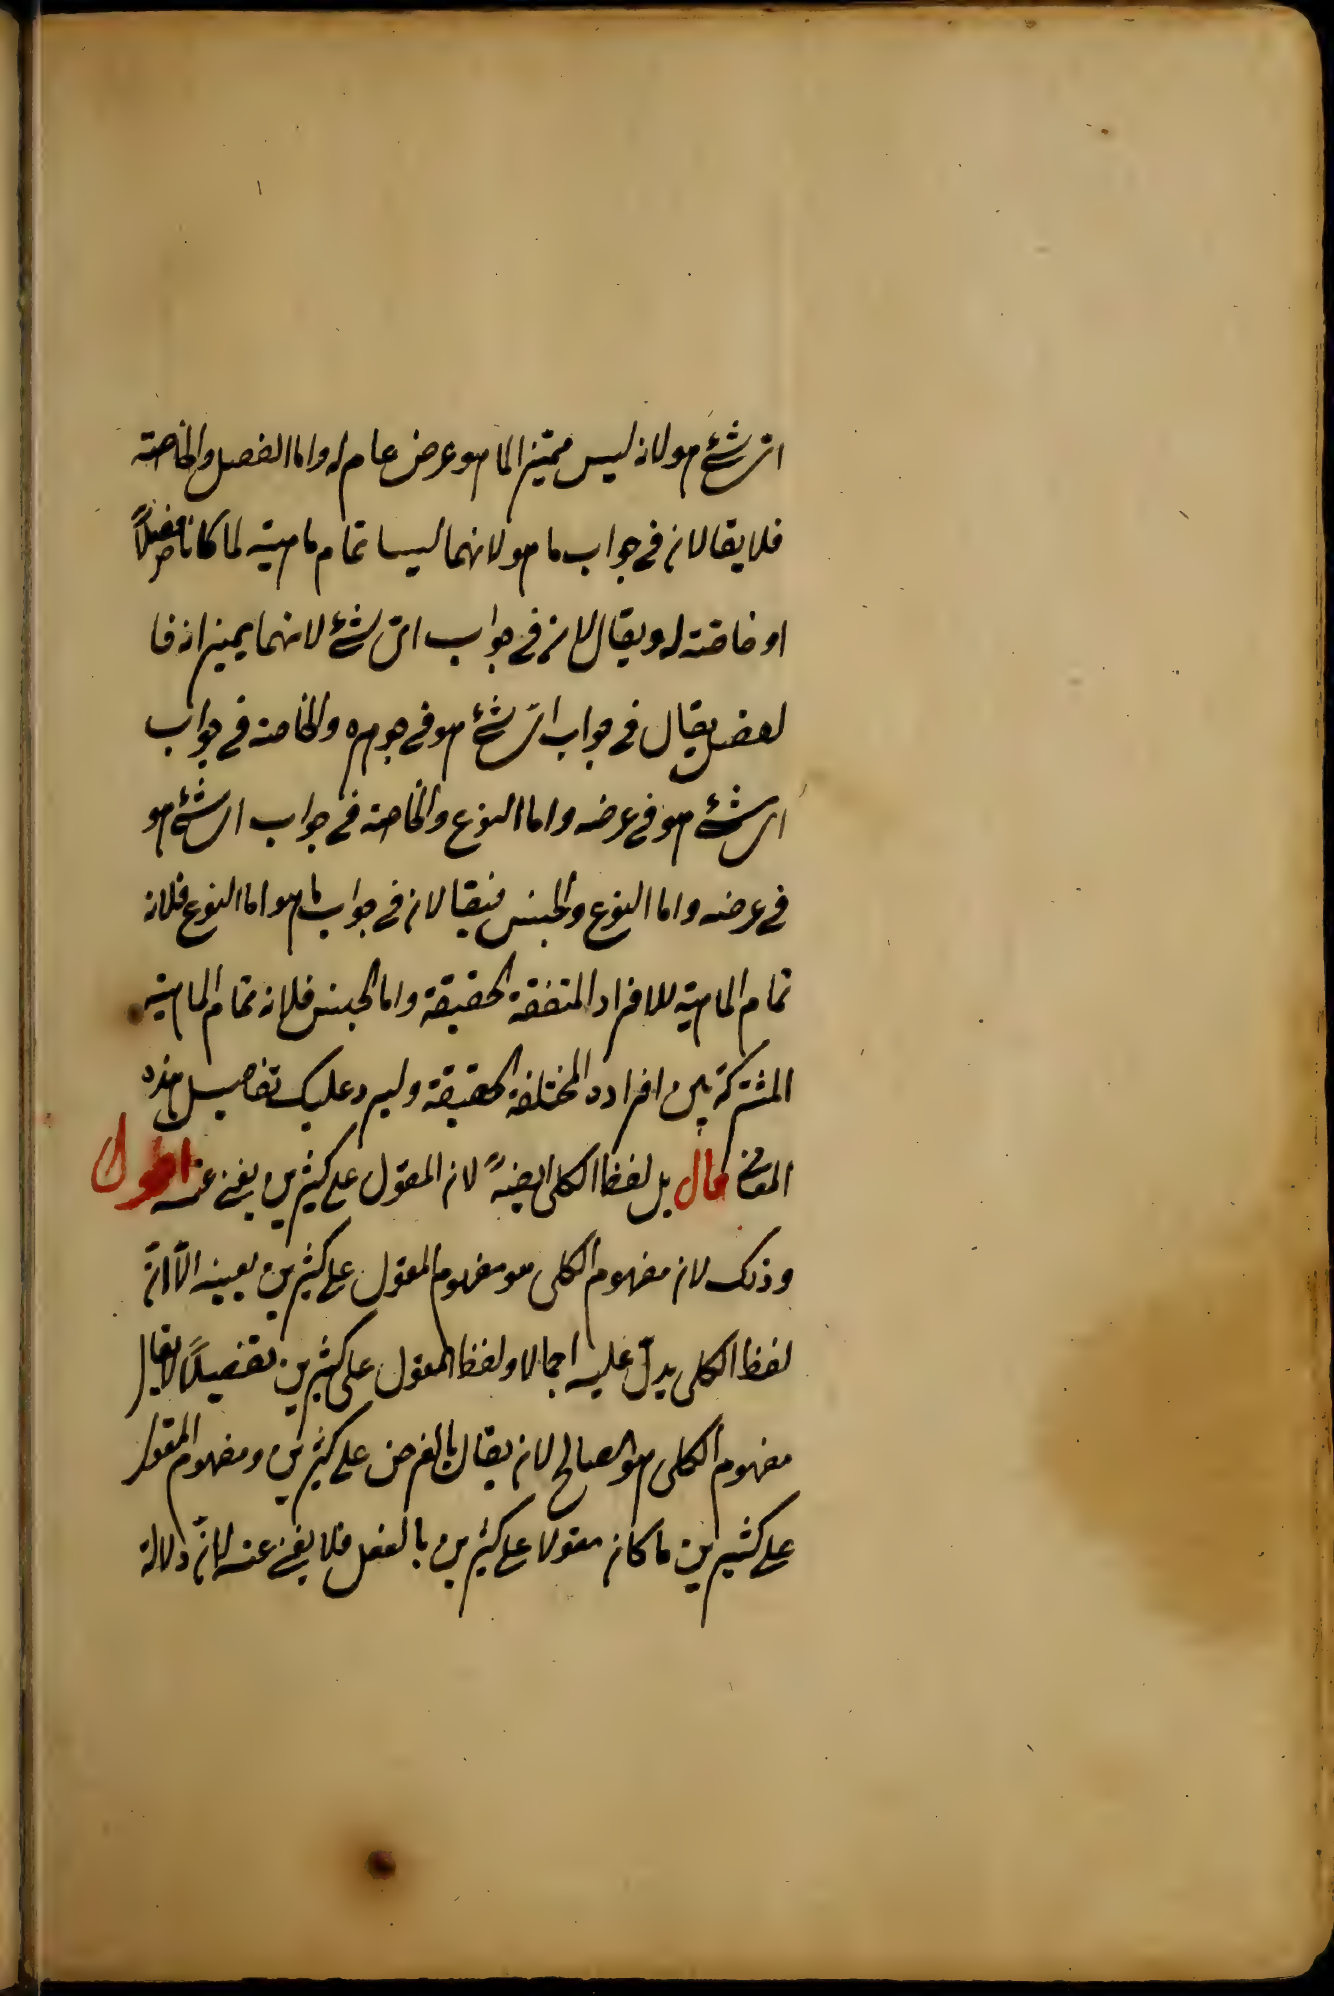 اىّ شئ هو لانه ليس مميّزا لما هو عرض عام له واما الفصل والخاصّة
فلا يقالان فى جواب ما هو لانهما ليسا تمام ماهيّة لما كانا فصلًا
او خاصّة له ويقالان فى جواب اىّ شئ لانهما يميزانه فا
لفصل يقال فى جواب اىّ شئ هو فى جوهره والخاصة فى جواب
اى شئ هو فى عرضه واما النوع والخاصة فى جواب اى شئ هو
فى عرضه واما النوع والجنس فيقالان فى جواب ما هو اما النوع فلانه
تمام الماهيّة للافراد المتفقة الحقيقة واما الجنس فلانه تمام الماهية
المشتركة بين افراده المختلفة الحقيقة وليرد عليك تفاصيل هذه
المعانى قال بل لفظ الكلى ايضًا لان المقول على كثيرين يغنى عنه اقول
وذلك لان مفهوم الكلى هو مفهوم المقول على كثيرين بعينه الّا انّ
لفظ الكلى يدلّ عليه اجمالا ولفظ المقول على كثيرين تفصيلًا لا يقال
مفهوم الكلى هو الصالح لان يقال بالفرض على كثيرين ومفهوم المقول
على كثيرين ما كان مقولا على كثيرين بالفعل فلا يغنى عنه لانّ دلالة